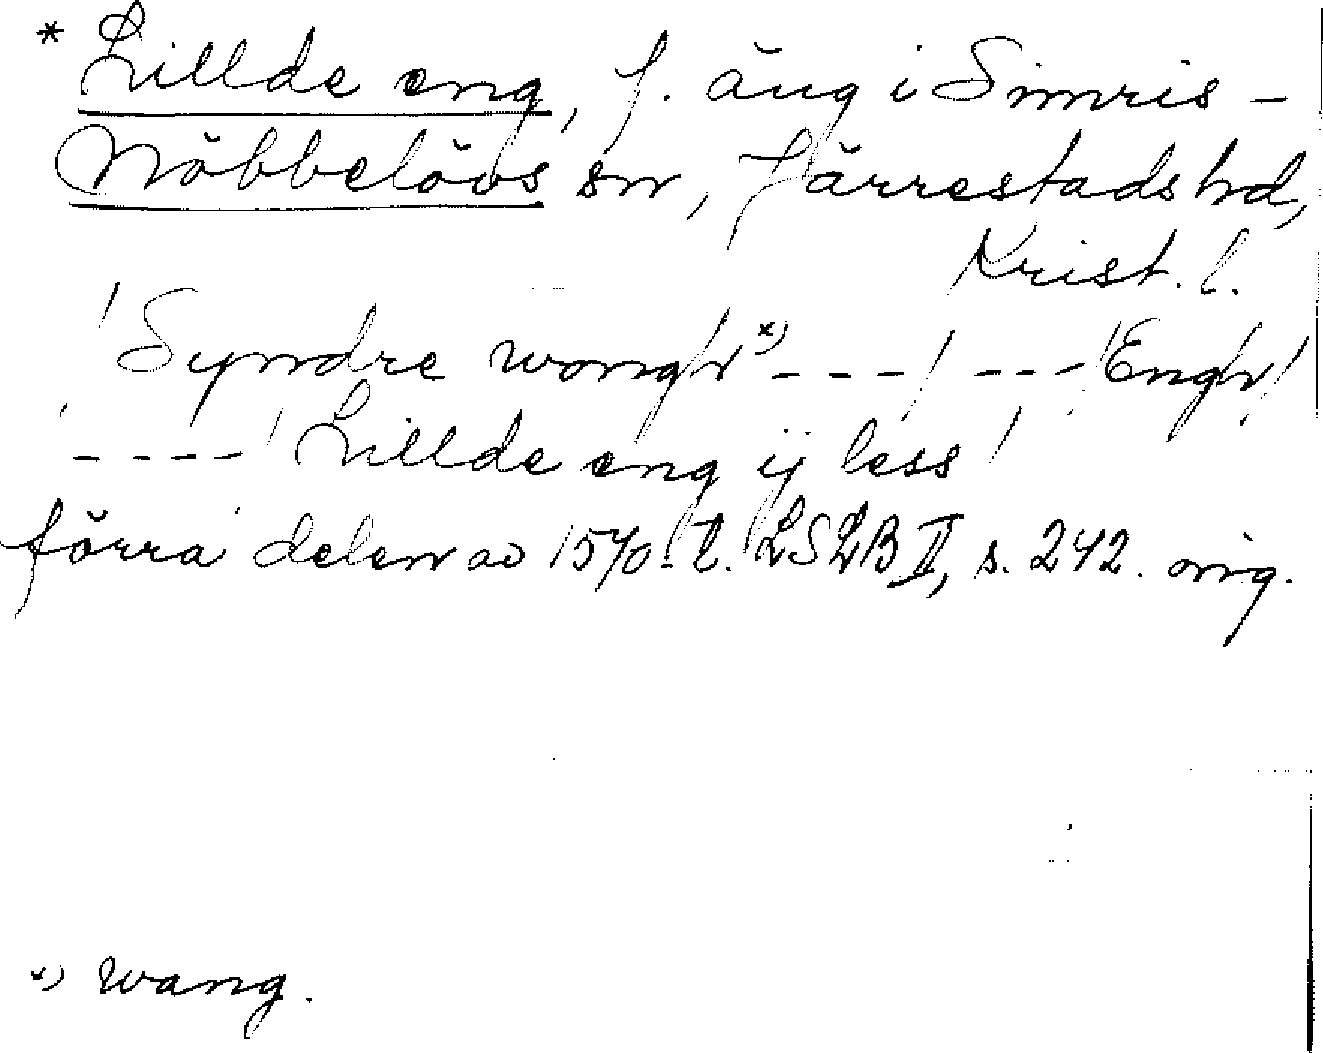 * Lillde eng, f. äng i Simris-
Nöbbelövs sn, Järrestads hd,
Krist. l.
/Syndre wongh *) ---/ ---/Engh/
/----/ Lillde eng ij less/
förra delen av 1570-t. LSLB II, s. 242. orig.
*) wang.